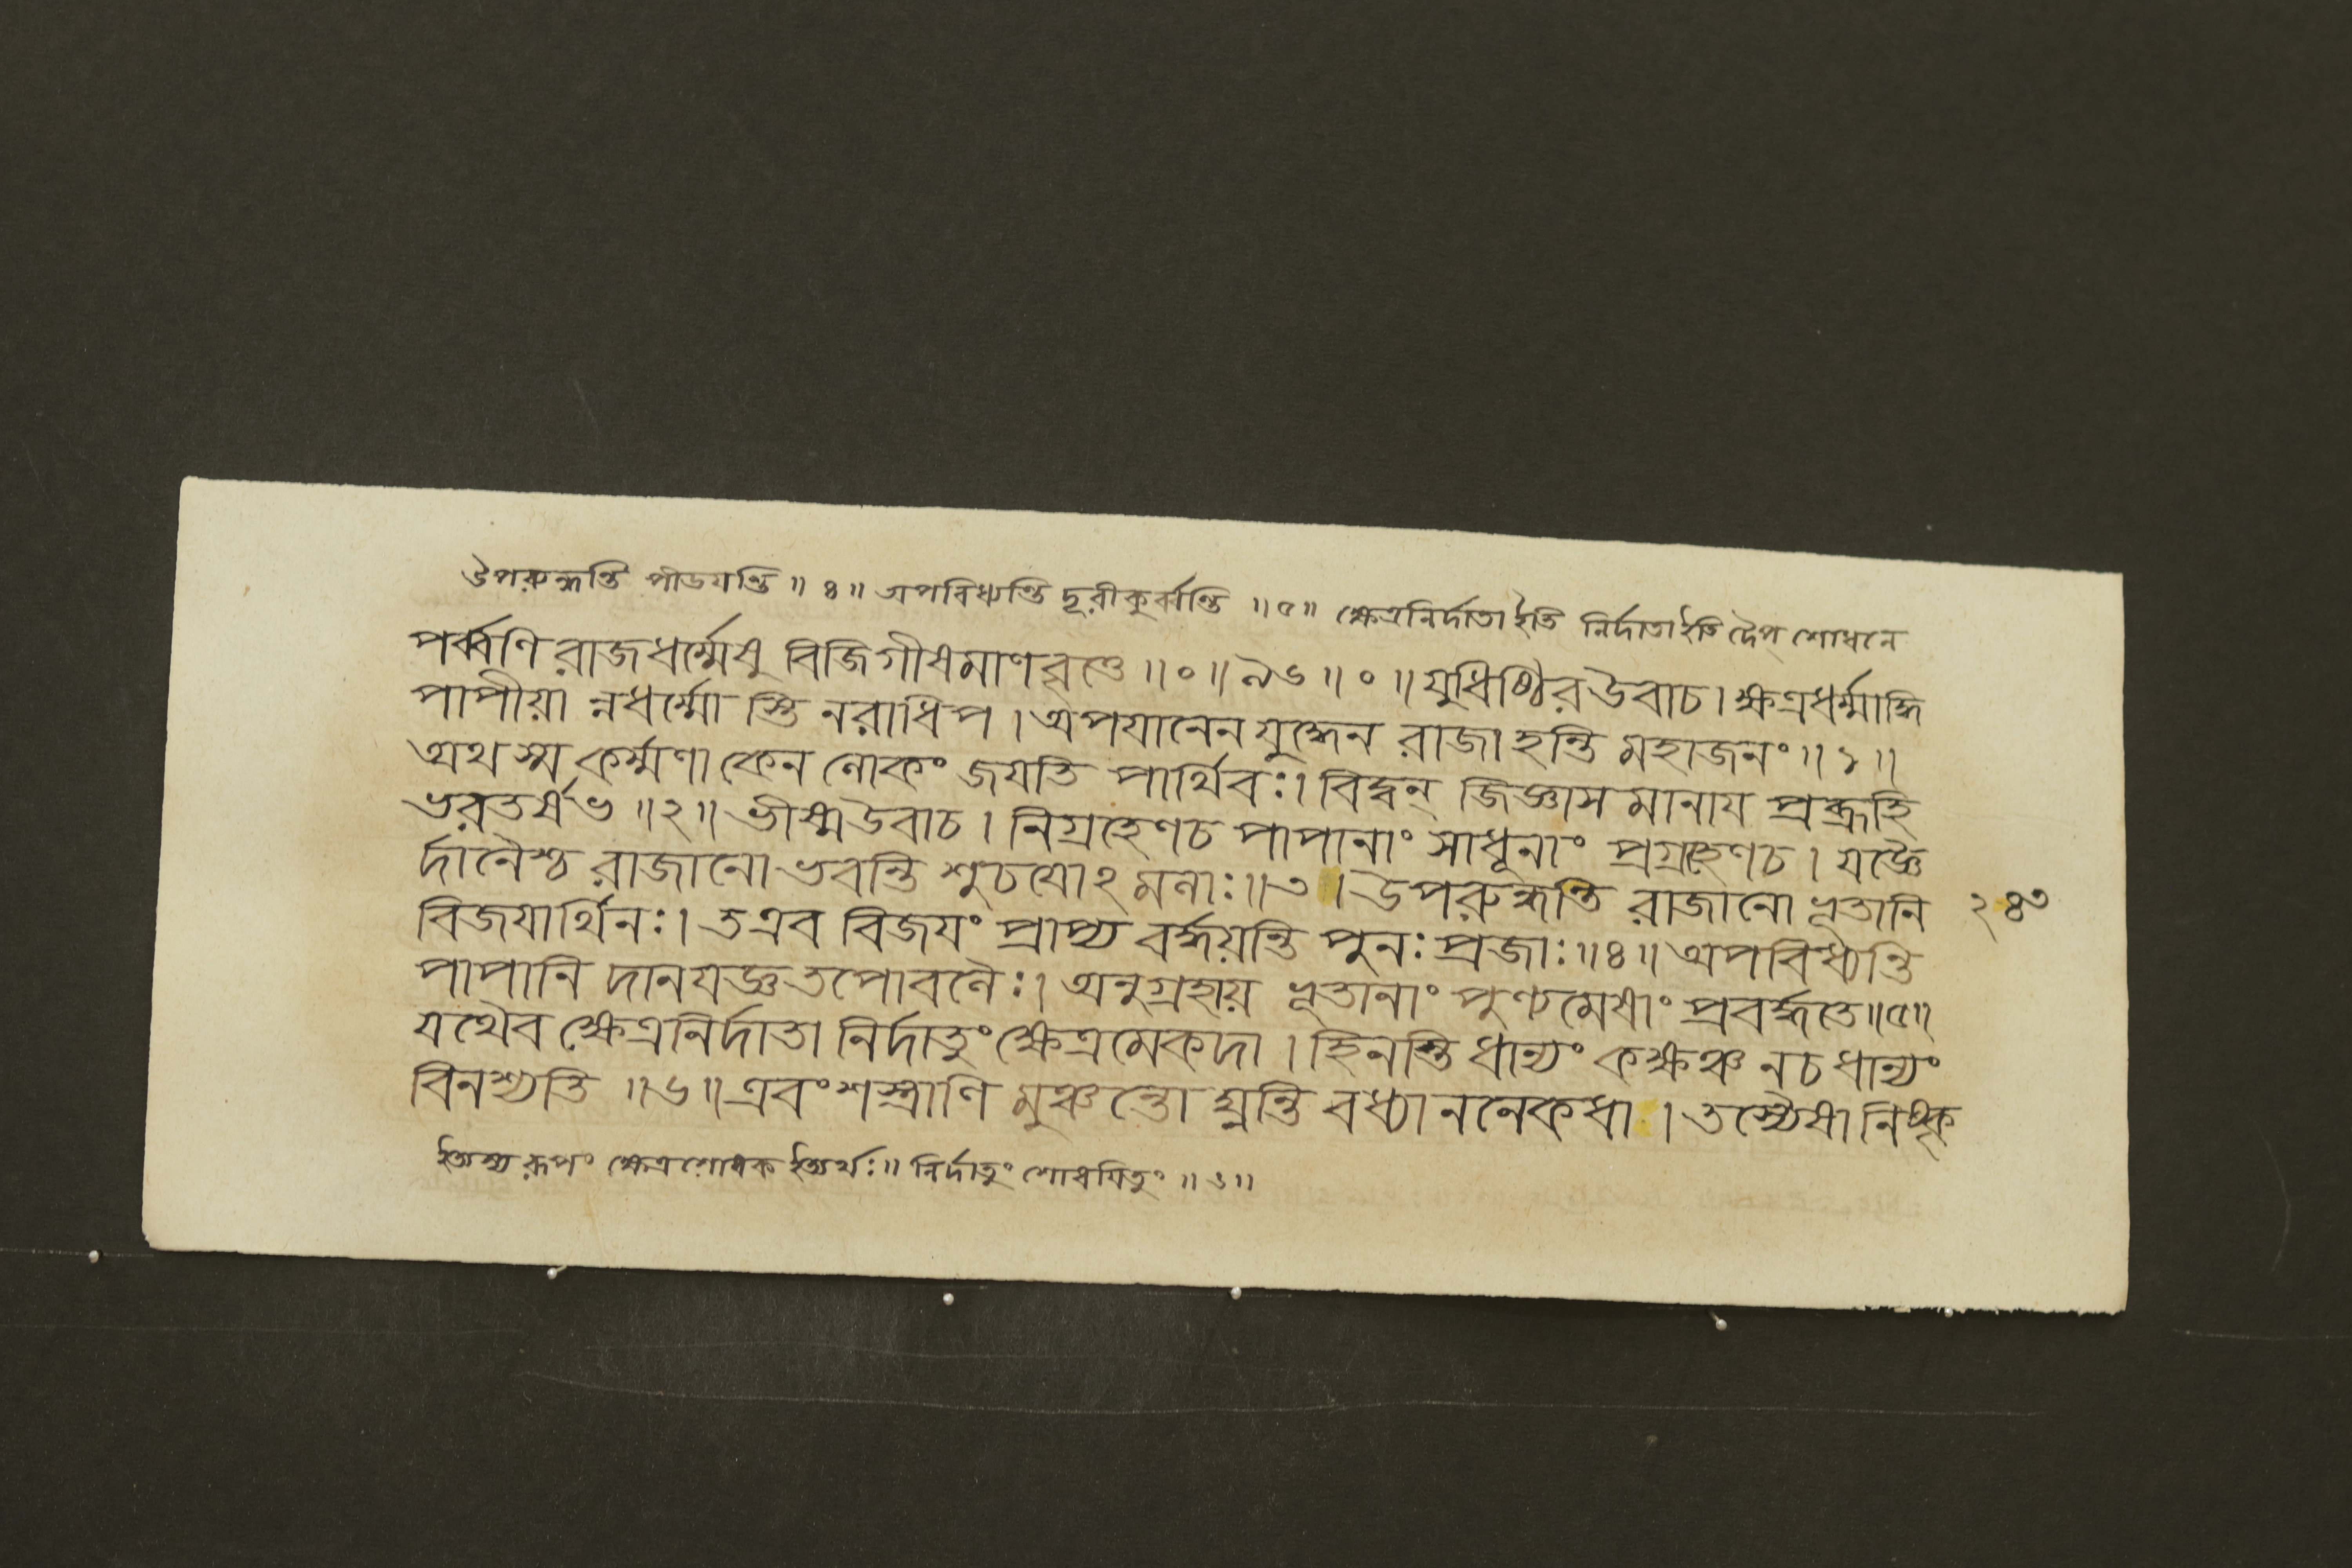 উপরুন্ধন্তি পীডযন্তি ॥ ৪ ॥ অপবিধ্যন্তি দূরীকুর্ব্বন্তি ॥ ৫ ॥ ক্ষেত্রনির্দাতা ইতি নির্দাতা ইতি দৈপ্ শোধনে
পর্ব্বণি রাজধর্ম্মেষু বিজিগীষমাণবৃত্তে ॥ ০ ॥ ৯৬ ॥ ০ ॥ যুধিষ্ঠির উবাচ । ক্ষত্রধর্ম্মাদ্ধি
পাপীয়া ন্নধর্ম্মো স্তি নরাধিপ । অপযানেন যুদ্ধেন রাজা হন্তি মহাজনং ॥ ১ ॥
অথ স্ম কর্ম্মণা কেন লোকং জযতি পার্থিবঃ । বিদ্বন্ জিজ্ঞাস মানায প্রব্রূহি
ভরতর্ষভ ॥ ২ ॥ ভীষ্ম উবাচ । নিগ্রহেণচ পাপানাং সাধূনাং প্রগ্রহেণচ । যজ্ঞৈ
র্দানৈশ্চ রাজানো ভবন্তি শুচযোঽ মলাঃ ॥ ৩ । উপরুন্ধন্তি রাজানো ভূতানি ২৪৩
বিজযার্থিনঃ । তএব বিজযং প্রাপ্য বর্দ্ধয়ন্তি পুনঃ প্রজাঃ ॥ ৪ ॥ অপবিধ্যন্তি
পাপানি দানযজ্ঞতপোবলৈঃ । অনুগ্রহায় ভূতানাং পুণ্যমেষাং প্রবর্দ্ধতে ॥ ৫ ॥
যথৈব ক্ষেত্রনির্দাতা নির্দাতুং ক্ষেত্রমেকদা । হিনস্তি ধান্যং কক্ষঞ্চ নচ ধান্যং
বিনশ্যতি ॥ ৬ ॥ এবং শস্ত্রাণি মুঞ্চন্তো ঘ্নন্তি বধ্যাননেকধা । তস্যৈষা নিষ্কৃ
ইত্যস্য রূপং ক্ষেত্রশোধক ইত্যর্থঃ ॥ নির্দাতুং শোধযিতুং ॥ ৬ ॥